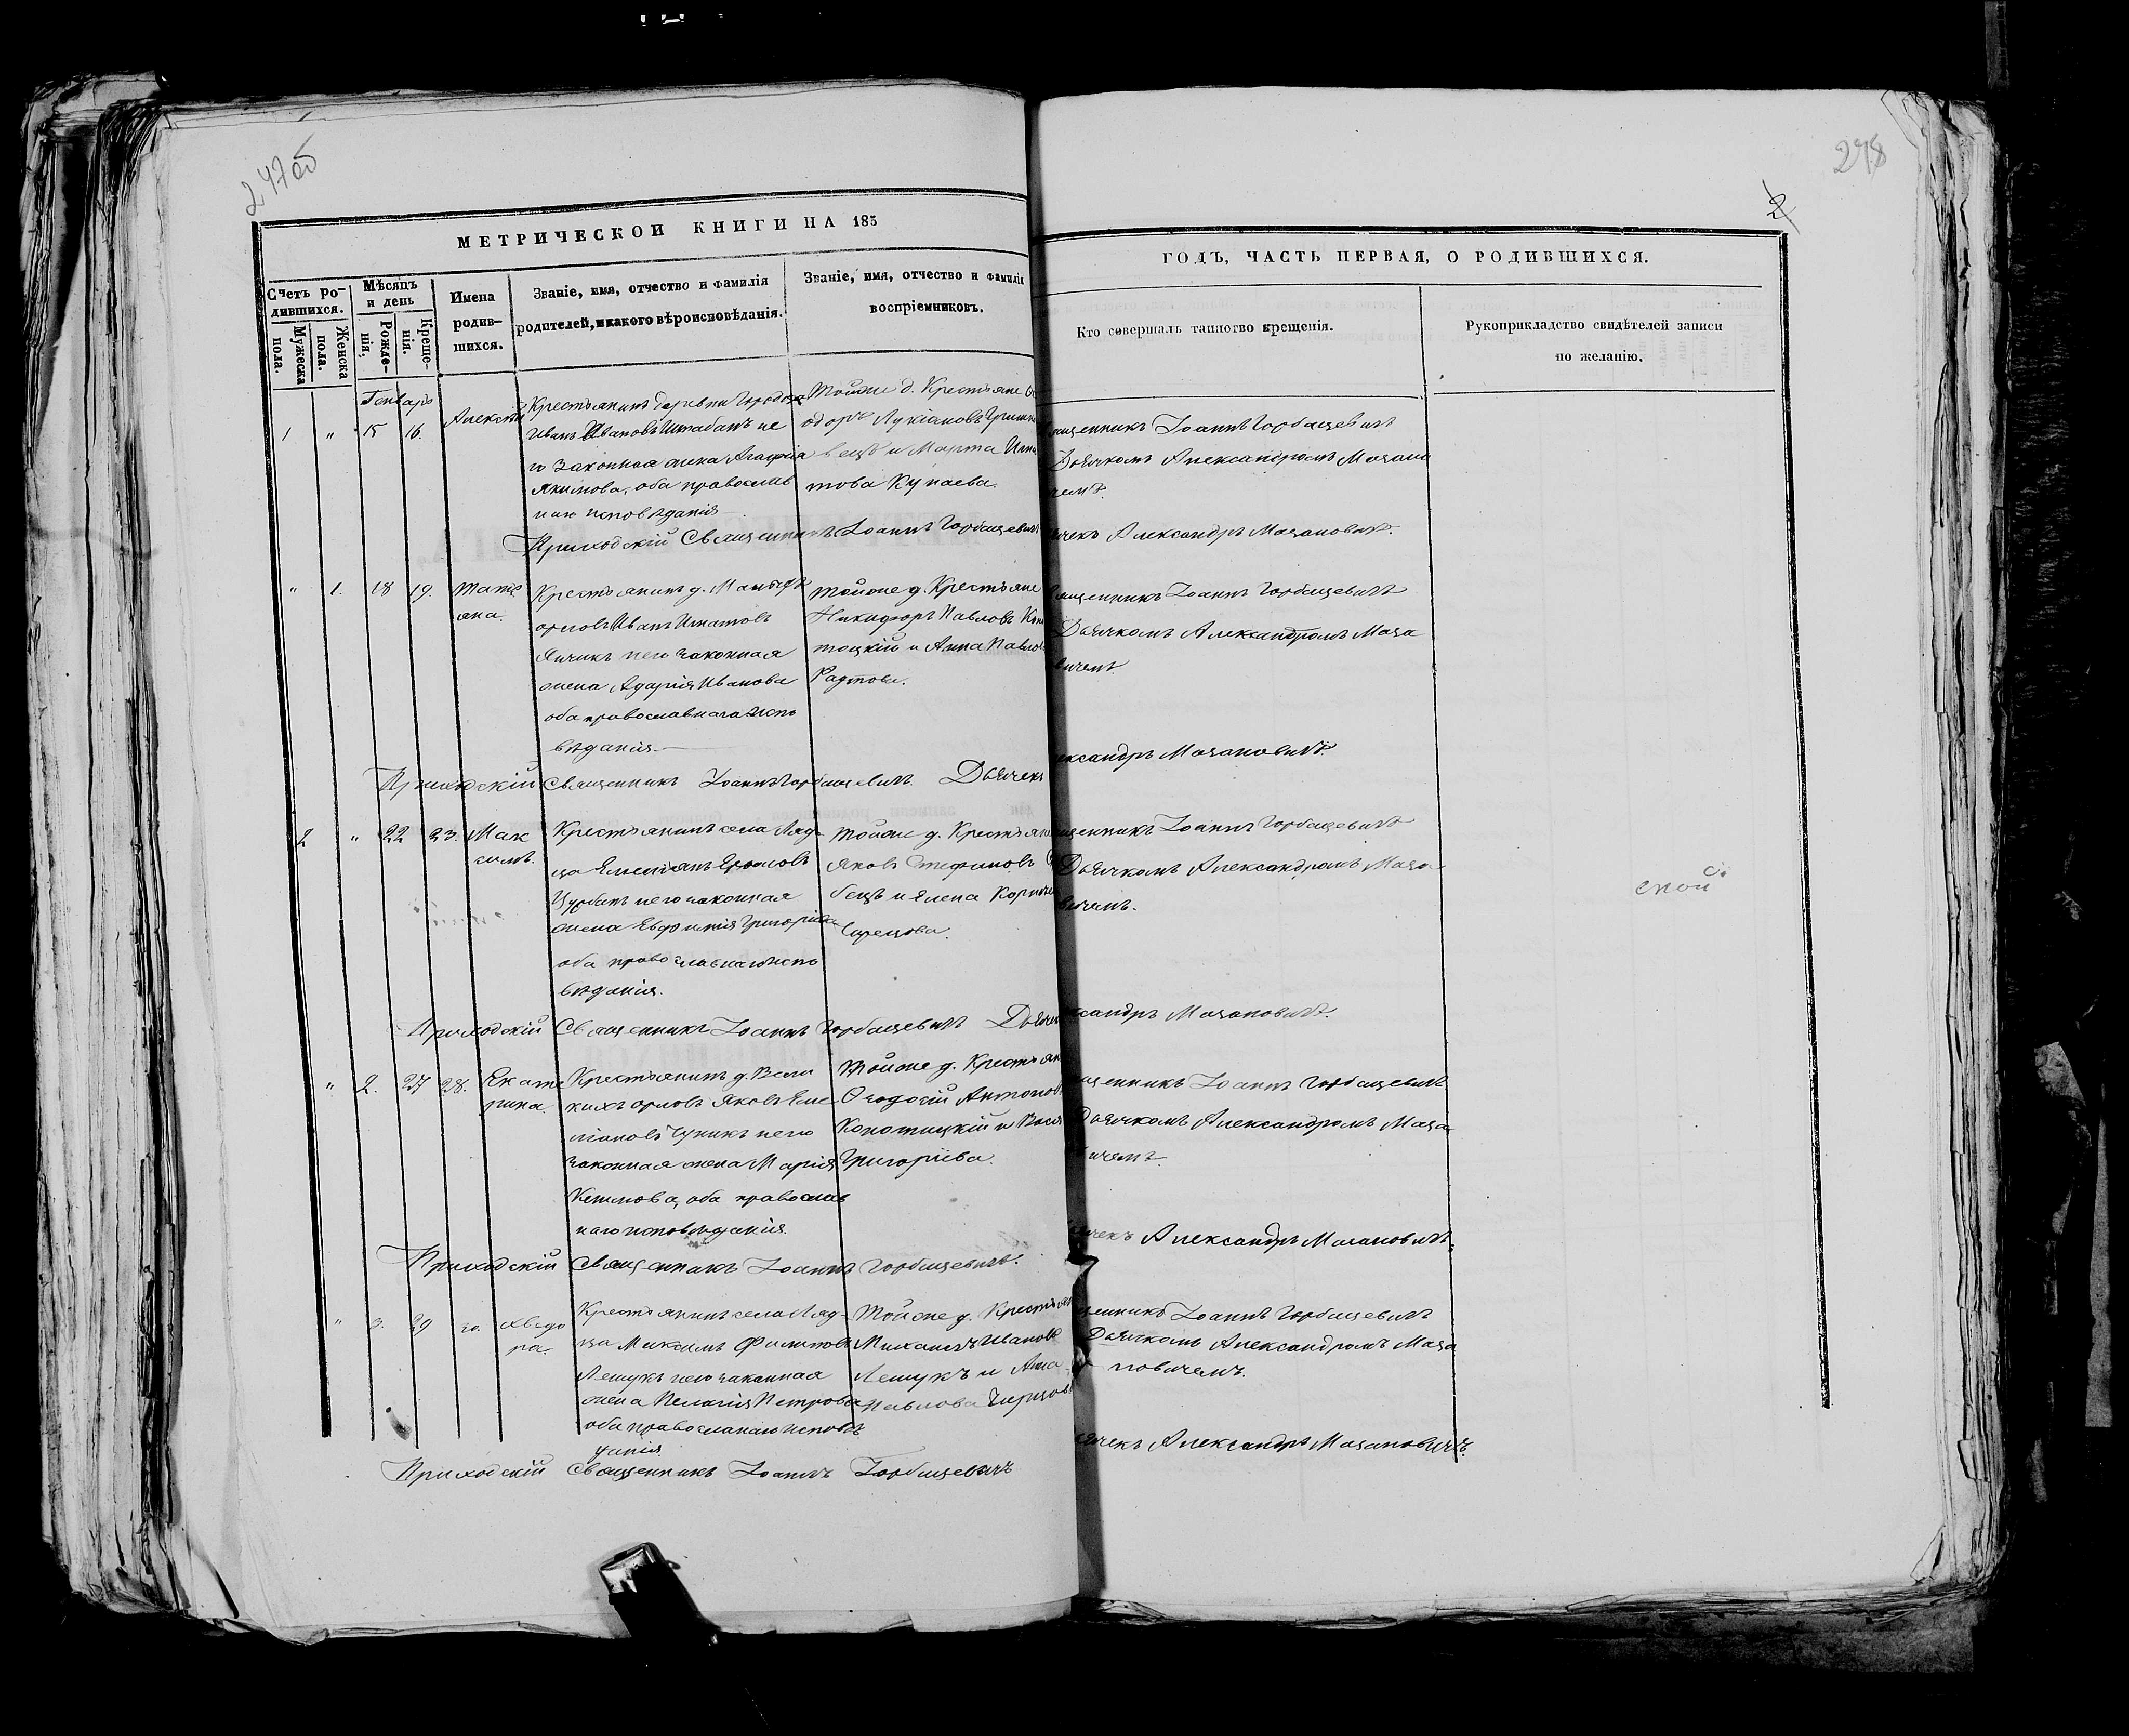 247об
278
2
МЕТРИЧЕСКОЙ КНИГИ НА 185
ГОДЪ, ЧАСТЬ ПЕРВАЯ, О РОДИВШИХСЯ.
Счетъ ро-
дившихся.
Мужеска
пола.
Женска
пола.
Мѣсяцъ
и день
Рожде-
нія,
Креще-
нія.
Имена
родив-
шихся.
Званіе, имя, отчество и фамилія
родителей, и какого вѣроисповѣданія.
Званіе, имя, отчество и фамилія
воспріемниковъ.
Кто совершалъ таинство крещенія.
Рукоприкладство свидѣтелей записи
по желанію.
Генварь
1 " 15 16.
Алексѣй
Крестьянинъ деревни
Иванъ Ивановъ
го законная жена Агафія
Якимова, оба православ
наго исповѣданія
Тойже д. Крестьяне
одоръ Лукіановъ
и Марта
това Купаева.
щенникъ Іоаннъ Горбацевичъ
Дьячкомъ Александромъ Мацано
чемъ.
Приходскій Священникъ Іоаннъ Горбацевичъ
ячекъ Александръ Мацановичъ.
" 1. 18 19.
Татія
яна.
Крестьянинъ д.
орловъ Иванъ Игнатовъ
Яичикъ и его законная
жена Иванова
оба православнаго испо
вѣданія.
тойже д. Крестьяне
Никифоръ Павловъ
тоцкій и Анна Павлов
щенникъ Іоаннъ Горбацевичъ
Дьячкомъ Александромъ Маца
вичемъ.
Приходскій Священникъ Іоаннъ Горбацевичъ. Дьячекъ
ександръ Мацановичъ.
2 " 22 23.
Мак
симъ.
Крестьянинъ села Ляд-
ца
и его законная
жена Евфимія Григоріева
оба православнаго испо
вѣданія.
Тойже д. Крестьяне
Яковъ Стефановъ
бецъ и Елена
щенникъ Іоаннъ Горбацевичъ
Дьячкомъ Александромъ Маца
вичемъ.
ской
Приходскій Священникъ Іоаннъ Горбацевичъ Дьячек
ксандръ Мацановичъ.
" 2. 27 28.
Екате
рина.
Крестьянинъ д. Вели
кихъ орловъ Яковъ Еме
ліановъ и его
законная жена Марія
оба православ
наго исповѣданія.
Тойже д. Крестьян
Ѳеодосій Антонов
и
Григоріева.
щенникъ Іоаннъ Горбацевичъ
Дьячкомъ Александромъ Маца
вичемъ.
Приходскій Священникъ Іоаннъ Горбацевичъ.
ячекъ Александръ Мацановичъ.
" 3. 29 30.
Хведо
ра.
Крестьянинъ села Ляд-
ца Максимъ Филиповъ
Лешукъ и его законная
жена Пелагія Петрова
оба православнаго исповѣ
данія
Тойже д. Крестьян
Михаилъ Ивановъ
Лешукъ и Анна
Павлова
щенникъ Іоаннъ Горбацевичъ
Дьячкомъ Александромъ Маца
новичемъ.
Приходскій Священникъ Іоаннъ Горбацевичъ
ячекъ Александръ Мацановичъ.